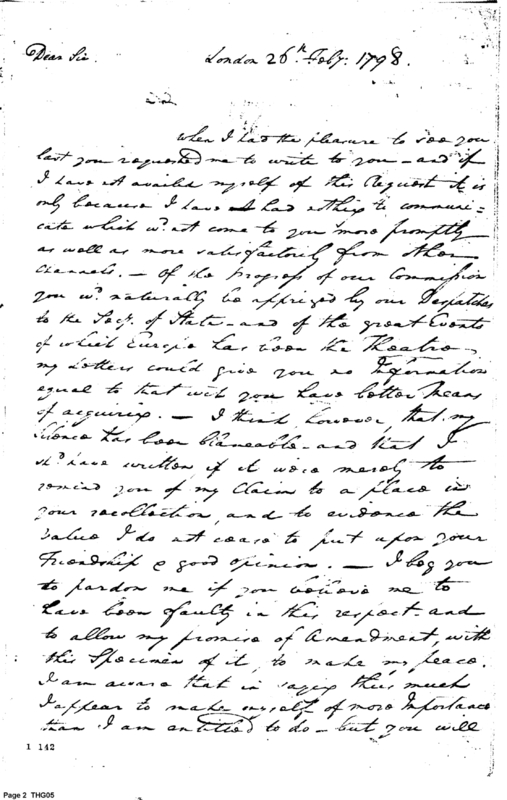 Dear Sir. London 26th. Feby. 1798.
when I had the pleasure to see you
last you requested me to write to you – and if
I have not availed myself of this Request it is
only because I have had nothing to communi=
cate which wd. not come to you more promptly
as well as more satisfactorily from other
Channels. – Of the Progress of our Commission
you wd. naturally be apprized by our Despatches
to the Secy. of State – and of the great Events
of which Europe has been the Theatre
my Letters could give you no Information
equal to that wch you have better Means
of acquiring. – I think, however, that my
Silence has been blameable – and that I
shd. have written, if it were merely to
remind you of my Claim to a place in
your recollection, and to evidence the
Value I do not cease to put upon your
Friendship & good opinion. – I beg you
to pardon me if you believe me to
have been faulty in this respect – and
to allow my promise of Amendment, with
this Specimen of it, to make my peace.
I am aware that in saying thus much
I appear to make myself of more Importance
than I am entitled to do – but you will
1 142
Page 2 THG05